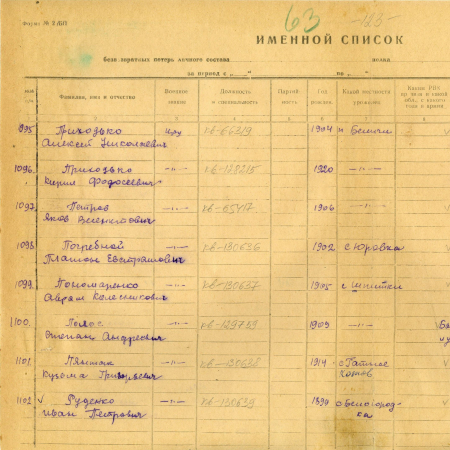 Форма № 2/БП
63
-123-
ИМЕННОЙ СПИСОК
безвозвратных потерь личного состава полка
за период с „ “ по „
Фамилия, имя и отчество
Военное звание
Должность и специальность
Партийность
Год рожден.
Какой местности уроженец
Каким РВК
2 3 4 5 6 7
1095 Приходько Алексей Николаевич кр/ кв-66219 1904
1096. Приходько Кирил Федосеевич —„— кв-128215 1920 —„—
1097. Петров Яков —„— кв-65417 1906 —„—
1098. Погребной Платон Евстратович —„— кв-130636 1902 с. Юровка
1099. Пономаренко Аврам —„— кв-130637 1905 с. Шпитки
1100. Полос Степан Андреевич —„— кв-129749 1909 —„—
1101. Кузьма Григорьевич —„— кв-130638 1914 с. Гатное
1102 v Руденко Иван Петрович —„— кв-130639 1894 с. Белогородка